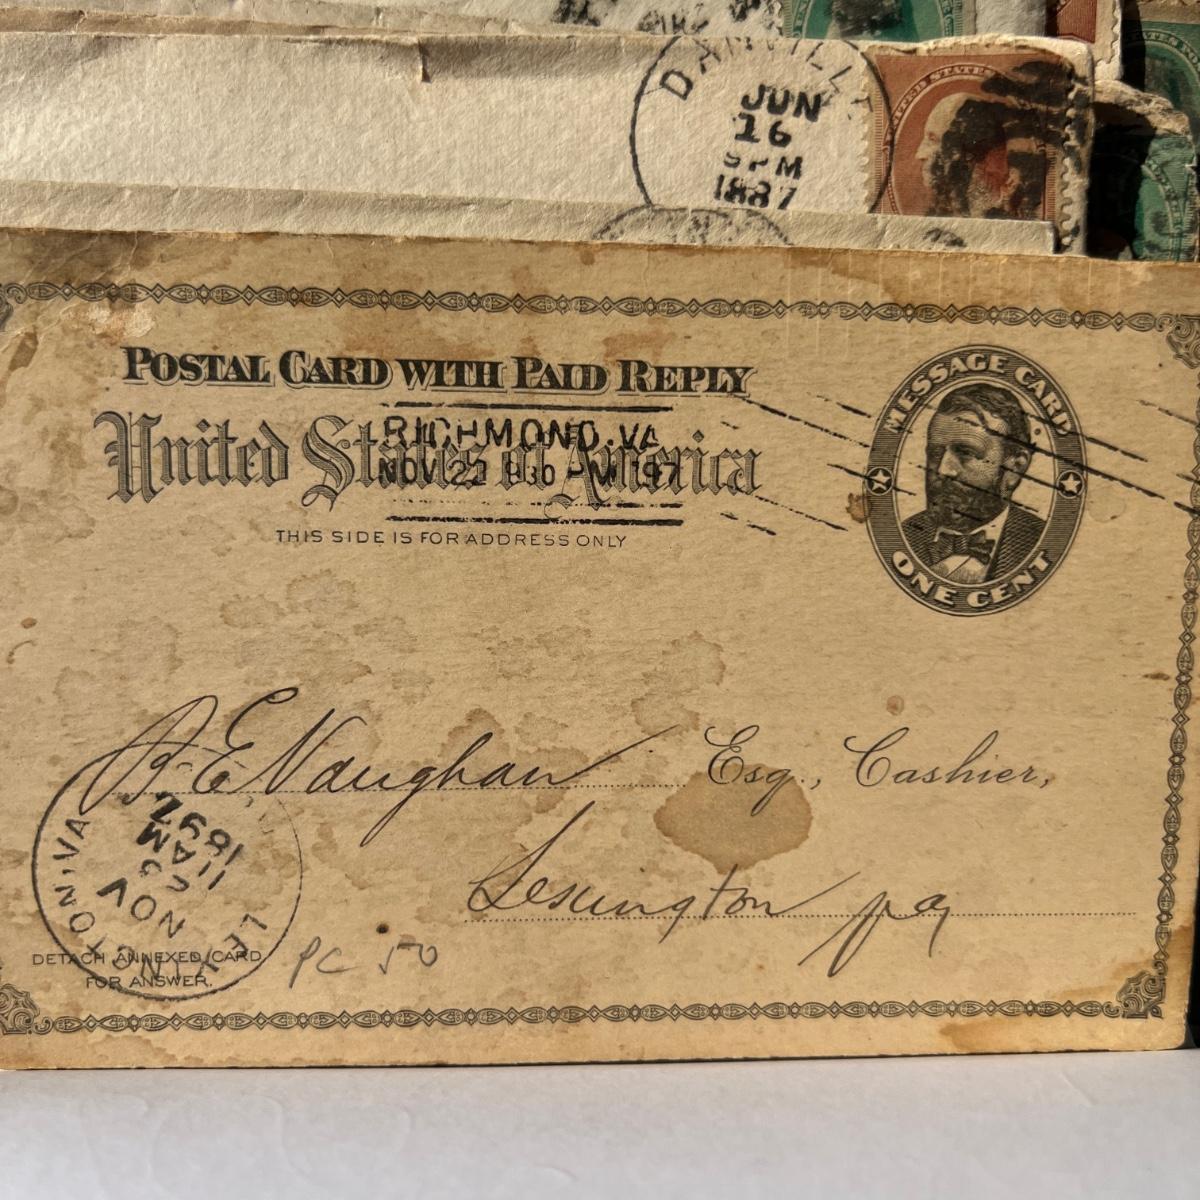 DANVILLE
JUN
16
9 PM
1887
UNITED STATES
POSTAL CARD WITH PAID REPLY
United States of America
RICHMOND, VA
NOV 22 8 30 PM '97
THIS SIDE IS FOR ADDRESS ONLY
MESSAGE CARD
ONE CENT
B. E. Vaughan Esq., Cashier,
Lexington Va
LEXINGTON, VA
NOV
11 AM
1897
DETACH ANNEXED CARD
FOR ANSWER.
PC 50